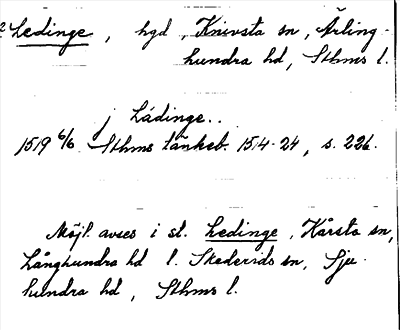 2 Ledinge, hgd, Knivsta sn, Ärling-
hundra hd, Sthms l.
j Ládinge..
1519 6/6 Sthms tänkeb. 1514-24, s. 226.
Möjl. avses i st. Ledinge, Kårsta sn,
Långhundra hd l. Skederids sn, Sju-
hundra hd, Sthms l.